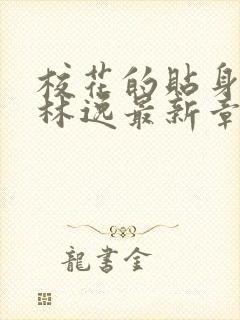 校花的貼身
林逸最新章
龍書金